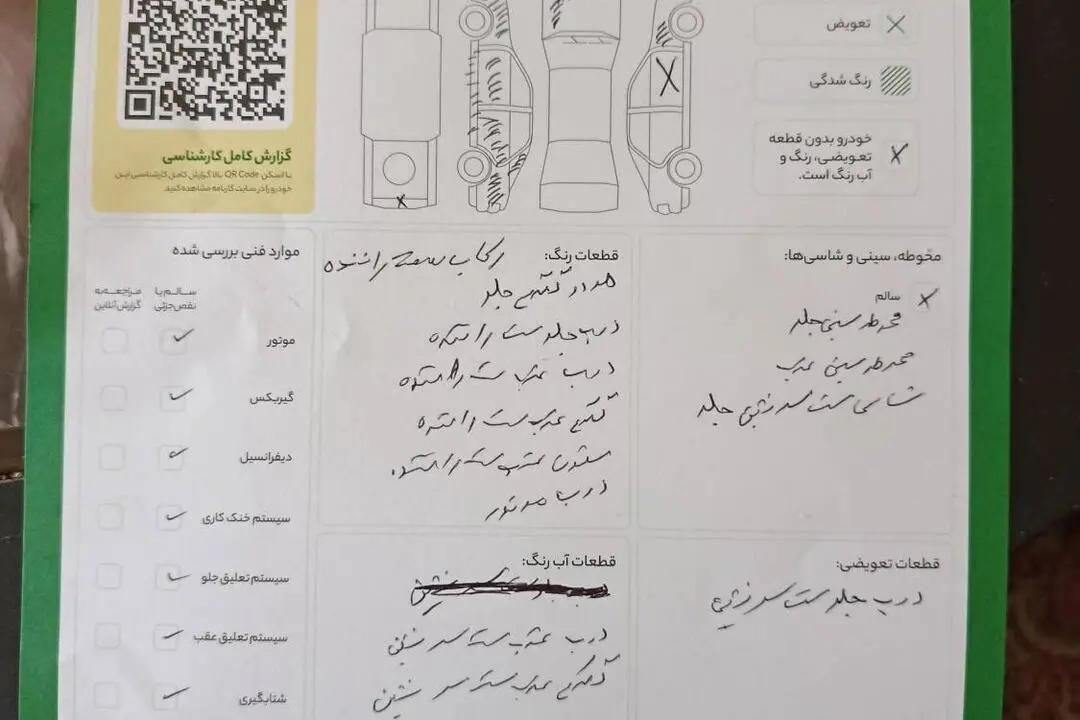 تعویض
رنگ شدگی
خودرو بدون قطعه
تعویضی، رنگ و
آب رنگ است.
گزارش کامل کارشناسی
با اسکن QR Code بالا گزارش کامل کارشناسی این
خودرو را در سایت کارنامه مشاهده کنید.
محوطه، سینی و شاسی‌ها:
سالم
محوطه سینی جلو
محوطه سینی عقب
شاسی سمت سرنشین جلو
قطعات رنگ: رکاب سمت راننده
هر دو گلگیر جلو
درب جلو سمت راننده
درب عقب سمت راننده
گلگیر عقب سمت راننده
ستون عقب سمت راننده
درب موتور
موارد فنی بررسی شده
سالم یا
نقص جزئی
مراجعه به
گزارش آنلاین
موتور
گیربکس
دیفرانسیل
سیستم خنک کاری
سیستم تعلیق جلو
سیستم تعلیق عقب
شتابگیری
قطعات تعویضی:
درب جلو سمت سرنشین
قطعات آب رنگ:
درب عقب سمت سرنشین
گلگیر عقب سمت سرنشین